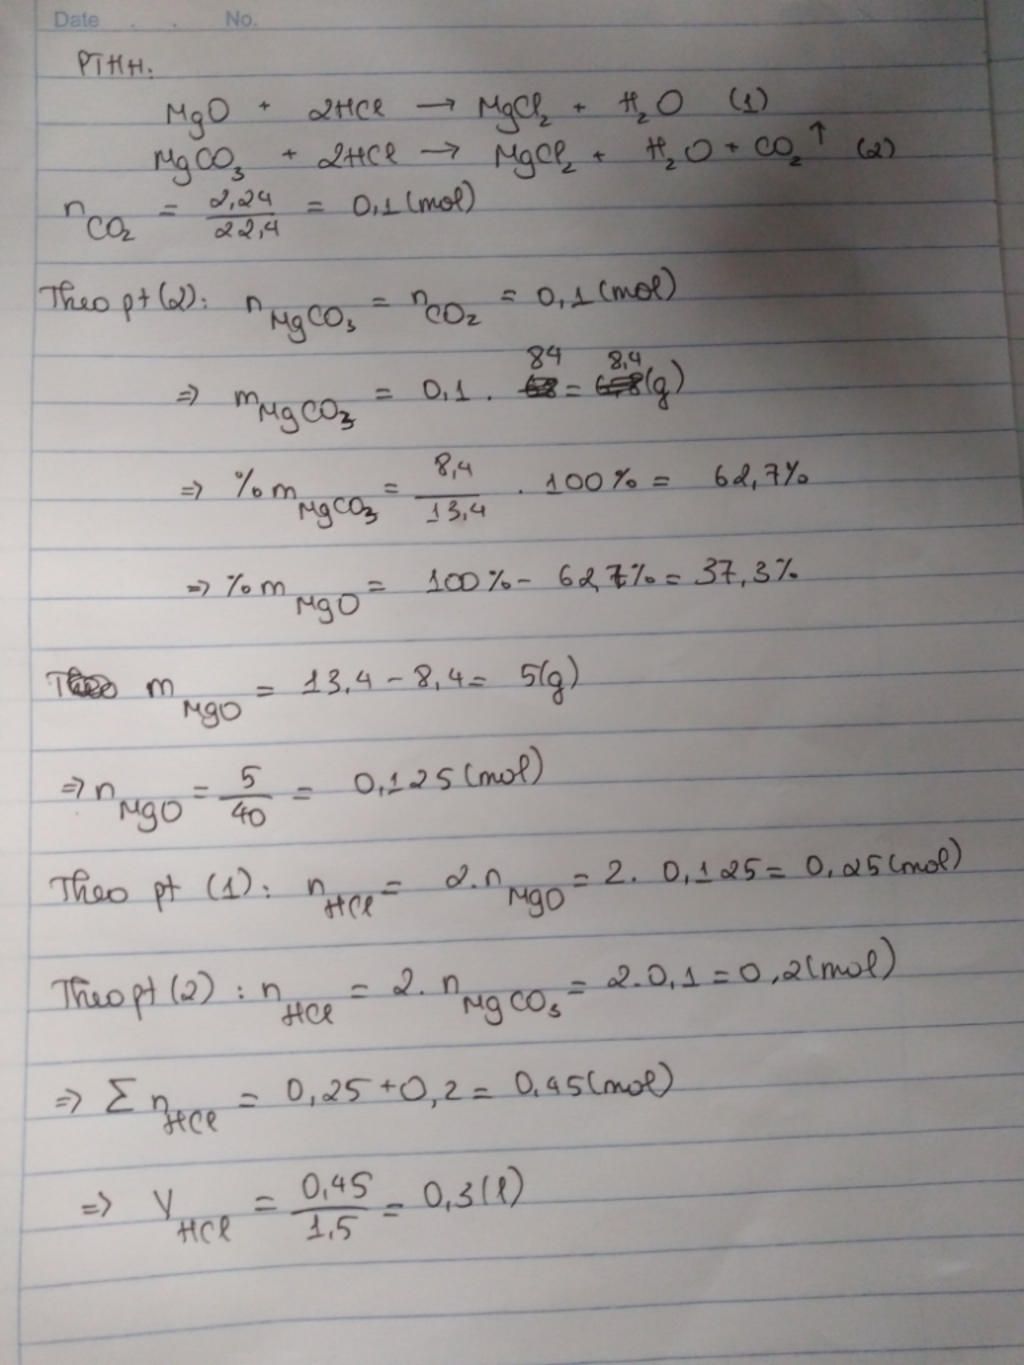 Date . . No.
PTHH:
MgO + 2HCl → MgCl₂ + H₂O (1)
MgCO₃ + 2HCl → MgCl₂ + H₂O + CO₂↑ (2)
n CO₂ = 2,24/22,4 = 0,1 (mol)
Theo pt (2): n MgCO₃ = n CO₂ = 0,1 (mol)
=> m MgCO₃ = 0,1 . 84 = 8,4 (g)
=> %m MgCO₃ = 8,4/13,4 . 100% = 62,7%
=> %m MgO = 100% - 62,7% = 37,3%
m MgO = 13,4 - 8,4 = 5(g)
=> n MgO = 5/40 = 0,125 (mol)
Theo pt (1): n HCl = 2.n MgO = 2. 0,125 = 0,25 (mol)
Theo pt (2): n HCl = 2. n MgCO₃ = 2.0,1 = 0,2 (mol)
=> Σ n HCl = 0,25 + 0,2 = 0,45 (mol)
=> V HCl = 0,45/1,5 = 0,3 (l)